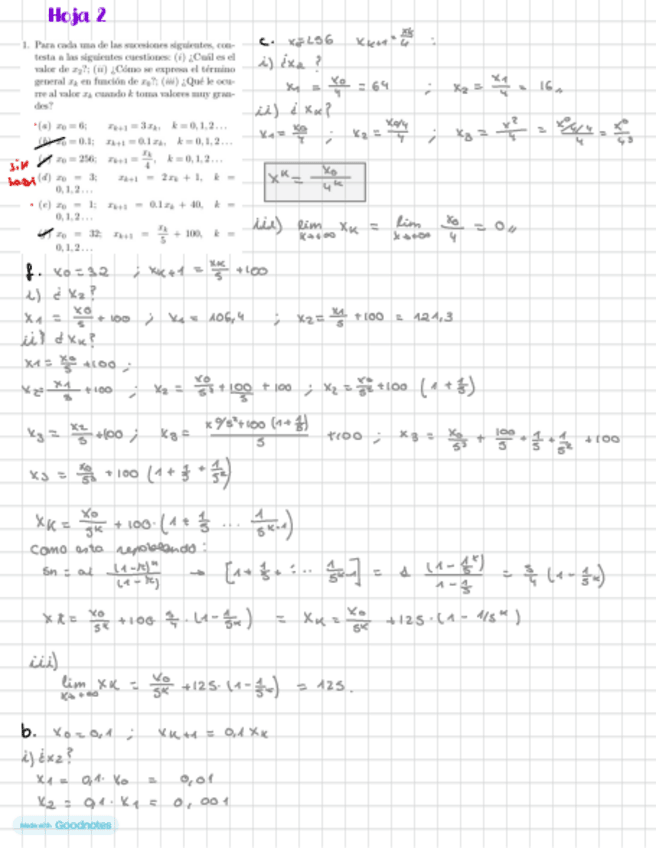 Hoja 2
1. Para cada una de las sucesiones siguientes, con-
testa a las siguientes cuestiones: (i) ¿Cuál es el
valor de x₂?; (ii) ¿Cómo se expresa el término
general xₖ en función de x₀?; (iii) ¿Qué le ocu-
rre al valor xₖ cuando k toma valores muy gran-
des?
(a) x₀ = 6; xₖ₊₁ = 3xₖ, k = 0,1,2...
(b) x₀ = 0.1; xₖ₊₁ = 0.1xₖ, k = 0,1,2...
(c) x₀ = 256; xₖ₊₁ = xₖ/4, k = 0,1,2...
(d) x₀ = 3; xₖ₊₁ = 2xₖ + 1, k =
0,1,2...
(e) x₀ = 1; xₖ₊₁ = 0.1xₖ + 40, k =
0,1,2...
(f) x₀ = 32; xₖ₊₁ = xₖ/5 + 100, k =
0,1,2...
sin
c. xₖ₊₁ = xₖ/4 :
i) ¿x₂?
x₁ = x₀/4 = 64 ; x₂ = x₁/4 = 16
ii) ¿xₖ?
x₁ = x₀/4 ; x₂ = x₀/4/4 ; x₃ = x²/4 = x⁰/4/4/4 = x⁰/4³
xᴷ = x₀/4ᴷ
iii) lim xₖ = lim x₀/4 = 0
f. x₀ = 32 ; xₖ₊₁ = xₖ/5 + 100
i) ¿x₂?
x₁ = x₀/5 + 100 ; x₁ = 106,4 ; x₂ = x₁/5 + 100 = 121,3
ii) ¿xₖ?
x₁ = x₀/5 + 100 ;
x₂ = x₁/5 + 100 ; x₂ = x₀/5² + 100/5 + 100 ; x₂ = x₀/5² + 100 (1 + 1/5)
x₃ = x₂/5 + 100 ; x₃ = x⁰/5² + 100 (1 + 1/5)/5 + 100 ; x₃ = x₀/5³ + 100/5 + 1/5 + 1/5² + 100
x₃ = x₀/5³ + 100 (1 + 1/5 + 1/5²)
xₖ = x₀/5ᴷ + 100·(1 + 1/5 ... 1/5ᴷ⁻¹)
Como esta :
Sn = a1 (1-r)ⁿ/(1-r) → [1 + 1/5 + ... 1/5ᴷ⁻¹] = 1 (1 - 1/5ᴷ)/(1 - 1/5) = 5/4 (1 - 1/5ᴷ)
xₖ = x₀/5ᴷ + 100 5/4 · (1 - 1/5ᴷ) = xₖ = x₀/5ᴷ + 125·(1 - 1/5ᴷ)
iii)
lim xₖ = x₀/5ᴷ + 125·(1 - 1/5ᴷ) = 125.
b. x₀ = 0,1 ; xₖ₊₁ = 0,1 xₖ
i) ¿x₂?
x₁ = 0,1 · x₀ = 0,01
x₂ = 0,1 · x₁ = 0,001
Made with Goodnotes